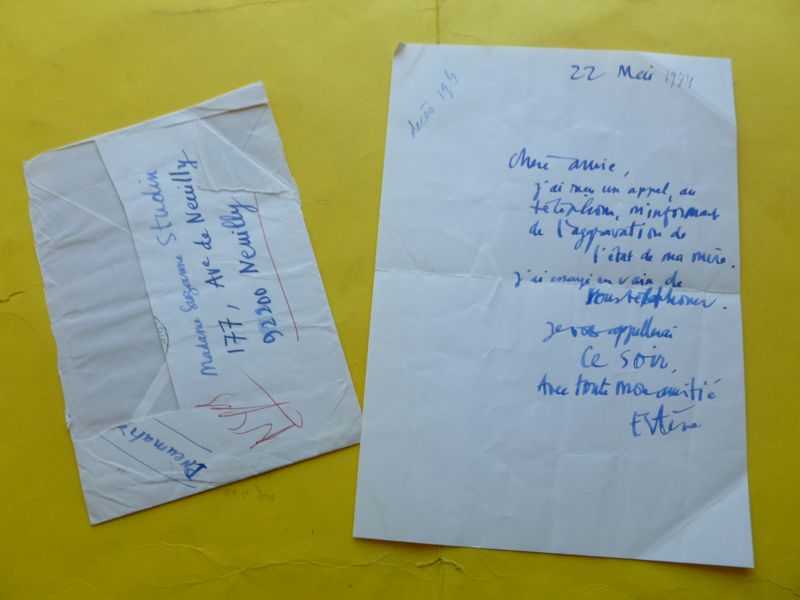 Madame Suzanne Studin
177, Ave de Neuilly
92200 Neuilly
Pneumatic
22 Mai 1974
decès
Chère amie,
j'ai reçu un appel, au
téléphone, m'informant
de l'aggravation de
l'état de ma mère.
j'ai essayé en vain de
vous téléphoner.
Je vous appellerai
Ce soir,
Avec toute mon amitié
Estève